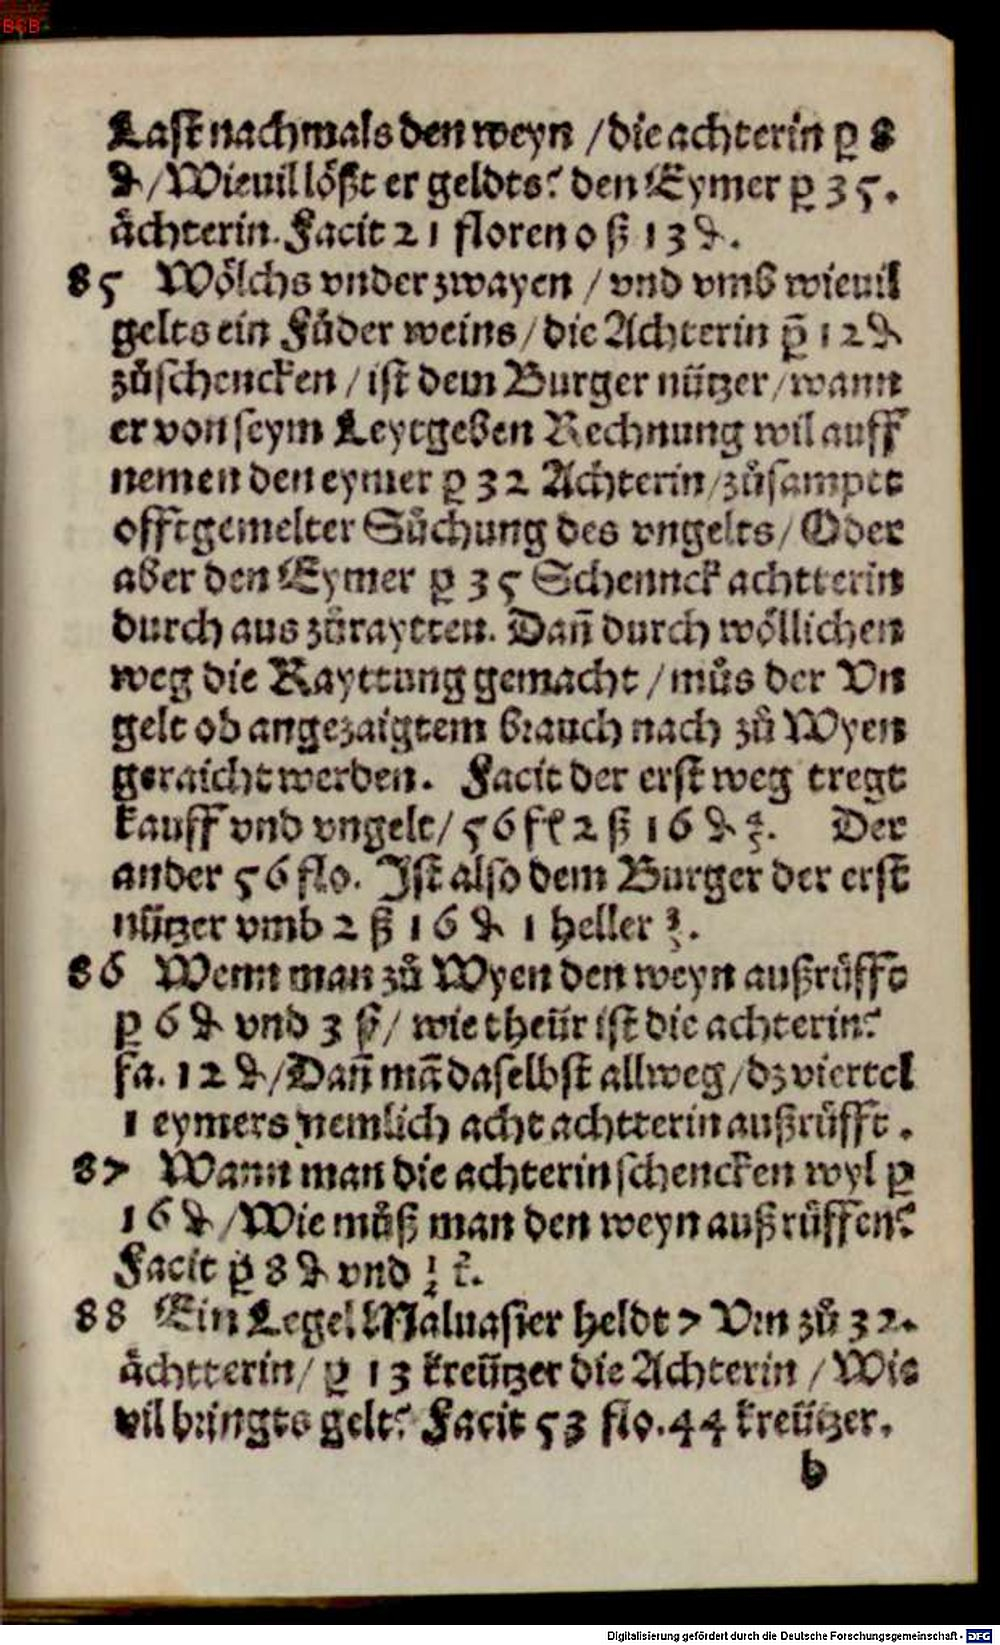 BSB
Last nachmals den weyn / die achterin ꝑ 8
₰ / Wieuil lößt er geldts? den Eymer ꝑ 35.
ächterin. Facit 21 floren 0 ß 13 ₰.
85 Wölchs vnder zwayen / vnd vmb wieuil
gelts ein Fůder weins / die Achterin ꝑ 12 ₰
zůschencken / ist dem Burger nützer / wann
er von seym Leytgeben Rechnung wil auff
nemen den eymer ꝑ 32 Achterin / zůsamptt
offtgemelter Sůchung des vngelts / Oder
aber den Eymer ꝑ 35 Schennck achtterin
durch aus zůraytten. Dañ durch wöllichen
weg die Rayttung gemacht / můs der Vn
gelt ob angezaigtem brauch nach zů Wyen
geraicht werden. Facit der erst weg tregt
kauff vnd vngelt / 56 fl 2 ß 16 ₰ . Der
ander 56 flo. Jst also dem Burger der erst
nützer vmb 2 ß 16 ₰ 1 heller .
86 Wenn man zů Wyen den weyn außrůfft
ꝑ 6 ₰ vnd 3 ß / wie theür ist die achterin?
fa. 12 ₰ / Dañ mā daselbst allweg / dz viertel
1 eymers nemlich acht achtterin außrůfft.
87 Wann man die achterin schencken wyl ꝑ
16 ₰ / Wie můß man den weyn auß růffen?
Facit ꝑ 8 ₰ vnd ½ t.
88 Ein Legel Maluasier heldt 7 Vrn zů 32.
ächtterin / ꝑ 13 kreützer die Achterin / Wie
vil bringts gelt? Facit 53 flo. 44 kreützer.
b
Digitalisierung gefördert durch die Deutsche Forschungsgemeinschaft - DFG